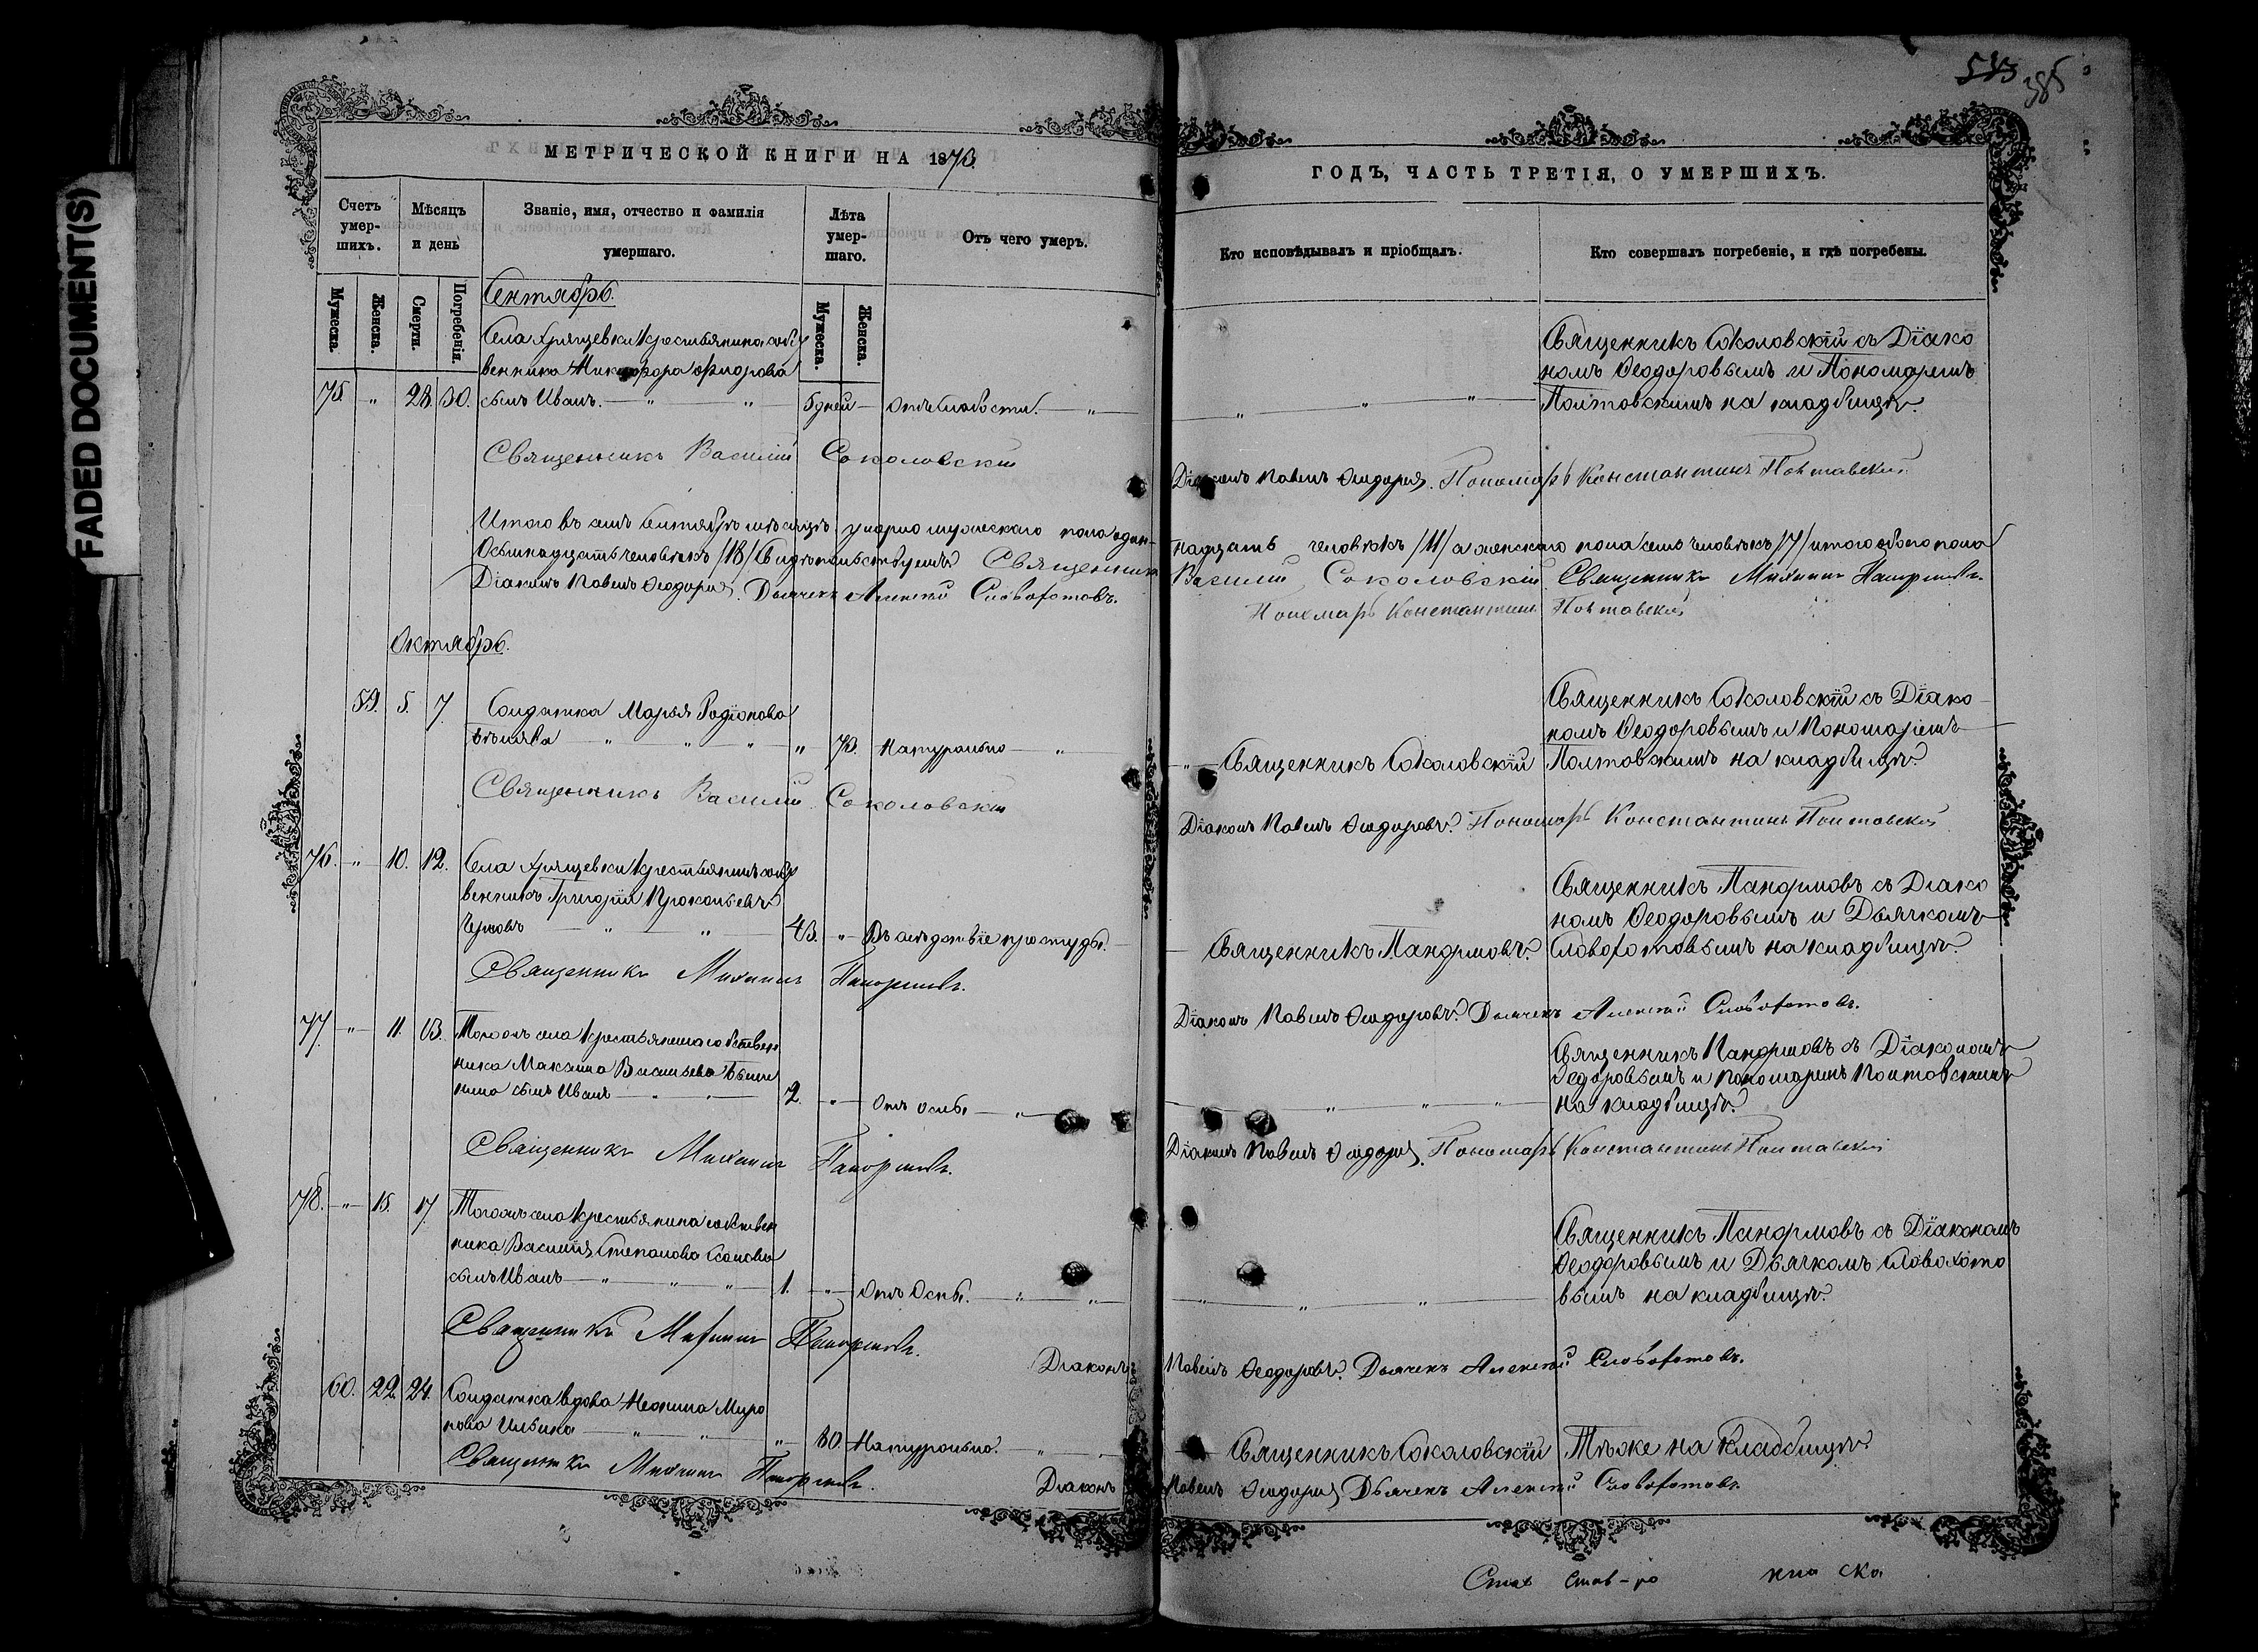 FADED DOCUMENT(S)
513
385
МЕТРИЧЕСКОЙ КНИГИ НА 1873.
ГОДЪ, ЧАСТЬ ТРЕТІЯ, О УМЕРШИХЪ.
Счетъ умер-шихъ.
Мѣсяцъ и день
Званіе, имя, отчество и фамилія умершаго.
Лѣта умер-шаго.
Отъ чего умеръ.
Кто исповѣдывалъ и пріобщалъ.
Кто совершалъ погребеніе, и гдѣ погребены.
Мужеска.
Женска.
Смерти.
Погребенія.
Мужеска.
Женска.
Сентябрь.
Села Хрящевки крестьянина соб
венника Никифора Ѳиорова
75. " 28. 30. сынъ Иванъ. 5 дней отъ слабости.
Священникъ Соколовскій съ Діако
номъ Ѳеодоровымъ и Пономаремъ
Полтовскимъ на кладбищѣ.
Священникъ Василий Соколовский
Діаконъ Павелъ Ѳеодоровъ. Пономарь Константинъ Полтавский
Итого въ семъ Сентябрѣ мѣсяцѣ умерло мужескаго пола один-
надцать человѣкъ /11/ а женскаго пола семь человѣкъ /7/ итого обоего пола
Осьмнадцать человѣкъ /18/ Свидѣтельствуемъ Священникъ
Василий Соколовский Священникъ Михаилъ Панормовъ.
Діаконъ Павелъ Ѳеодоровъ. Дьячекъ Алексѣй Словохотовъ.
Пономарь Константинъ Полтавский
Октябрь.
59. 5. 7. Солдатка Марья Родіонова
Бѣляева " 73. Натурально
Священникъ Соколовскій
Священникъ Соколовскій съ Діако
номъ Ѳеодоровымъ и Пономаремъ
Полтовскимъ на кладбищѣ.
Священникъ Василий Соколовский
Діаконъ Павелъ Ѳеодоровъ. Пономарь Константинъ Полтавский
76. " 10. 12. Села Хрящевки крестьянинъ соб
венникъ Григорій Прокопьевъ
43. " Въ слѣдствіе простуды.
Священникъ Панормовъ.
Священникъ Панормовъ съ Діако
номъ Ѳеодоровымъ и Дьячкомъ
Словохотовымъ на кладбищѣ.
Священникъ Михаилъ Панормовъ.
Діаконъ Павелъ Ѳеодоровъ. Дьячекъ Алексѣй Словохотовъ.
77. " 11. 13. Того же села крестьянина собствен
ника Максима Васильева
сынъ Иванъ 2. " отъ оспы
Священникъ Панормовъ съ Діакономъ
Ѳедоровымъ и пономаремъ Полтовскимъ
на кладбищѣ.
Священникъ Михаилъ Панормовъ.
Діаконъ Павелъ Ѳеодоровъ. Пономарь Константинъ Полтавский
78. " 15. 17. Того же села крестьянина собствен
ника Василія Степанова
сынъ Иванъ 1. " отъ Оспы.
Священникъ Панормовъ съ Діакономъ
Ѳеодоровымъ и Дьячкомъ Словохото
вымъ на кладбищѣ.
Священникъ Михаилъ Панормовъ.
Діаконъ Павелъ Ѳеодоровъ. Дьячекъ Алексѣй Словохотовъ.
60. 22. 24. Солдатка вдова Неонила Миро
нова Ильина " 80. Натурально.
Священникъ Соколовскій Тѣже на Кладбищѣ.
Священникъ Михаилъ Панормовъ.
Діаконъ Павелъ Ѳеодоровъ Дьячекъ Алексѣй Словохотовъ.